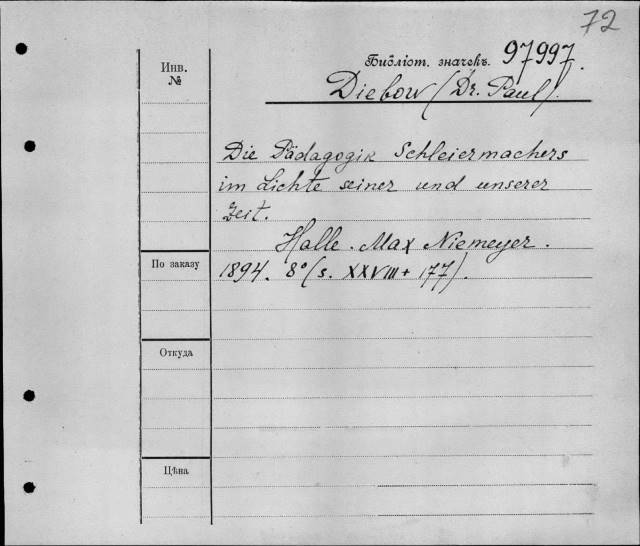 72
Инв.
№
Библіот. значекъ. 97997.
Diebow (Dr. Paul).
Die Pädagogik Schleiermachers
im Lichte seiner und unserer
Zeit.
Halle. Max Niemeyer.
По заказу
1894. 8° (s. XXVIII + 177).
Откуда
Цѣна